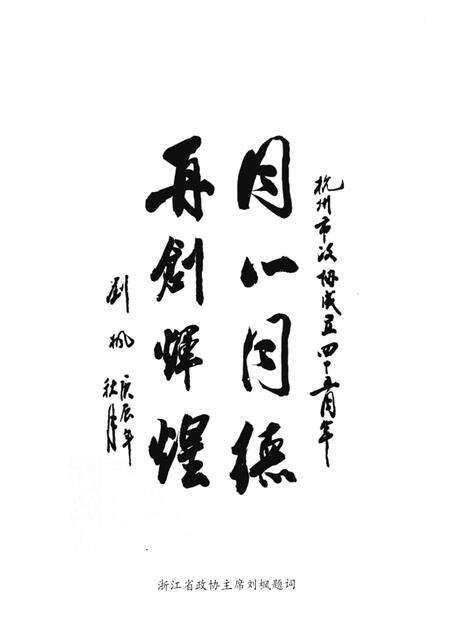 杭州市政协成立四十五周年
同心同德
再創輝煌
劉楓
庚辰年
秋月
浙江省政协主席刘枫题词